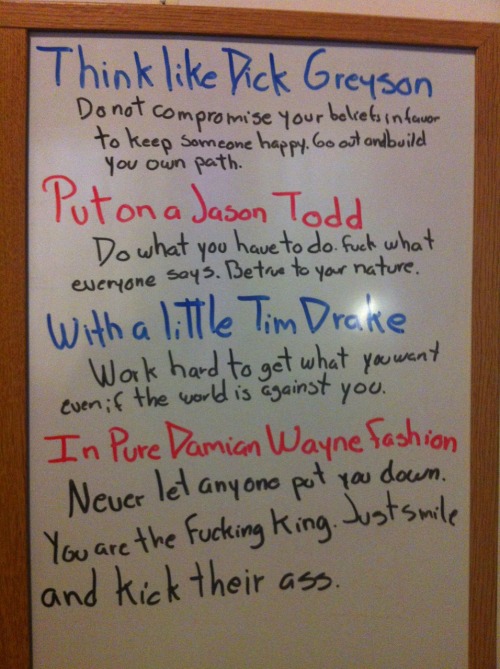 Think like Dick Greyson
Do not compromise your beliefs in favor
to keep someone happy. Go out and build
you own path.
Put on a Jason Todd
Do what you have to do. Fuck what
everyone says. Be true to your nature.
With a little Tim Drake
Work hard to get what you want
even if the world is against you.
In Pure Damian Wayne Fashion
Never let anyone put you down.
You are the Fucking King. Just smile
and kick their ass.